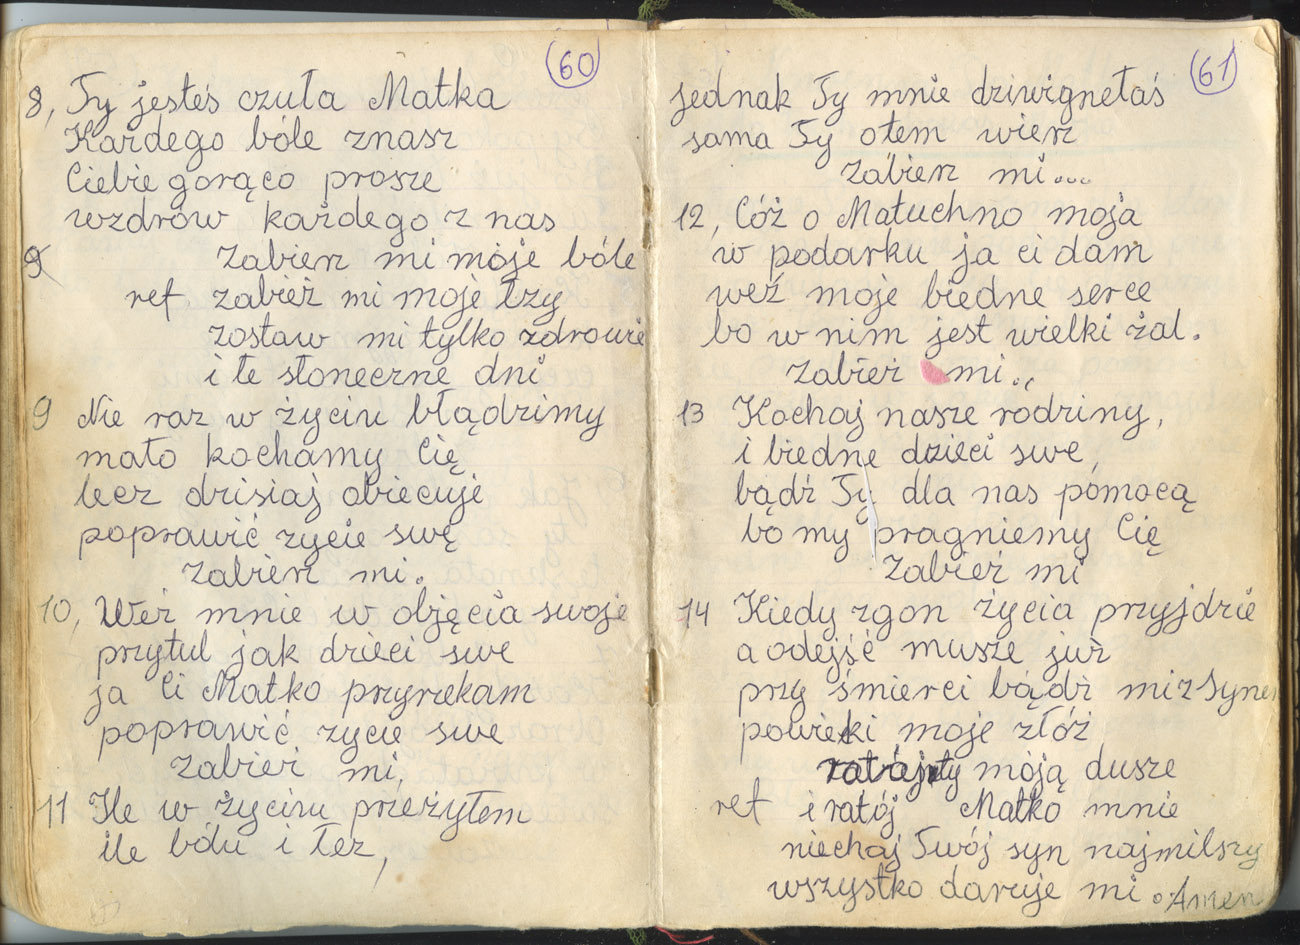 60
8, Ty jesteś czuła Matka
Każdego bóle znasz
Ciebie gorąco prosze
wzdrów każdego z nas
9
Zabierz mi moje bóle
ref zabież mi moje łzy
zostaw mi tylko zdrowie
i te słoneczne dni
9 Nie raz w życiu błądzimy
mało kochamy Cię
lecz dzisiaj obiecuje
poprawić życie swę
Zabierz mi.
10, Weź mnie w objęcia swoje
przytul jak dzieci swe
ja Ci Matko przyrzekam
poprawić życie swe
Zabież mi,
11 Ile w życiu przeżyłem
ile bólu i łez,
61
jednak Ty mnie dziwignełaś
sama Ty otem wierz
Zabierz mi...
12, Cóż o Matuchno moja
w podarku ja ci dam
weź moje biedne serce
bo w nim jest wielki żal.
Zabież mi..
13 Kochaj nasze rodziny,
i biedne dzieci swe,
bądź Ty dla nas pomocą
bo my pragniemy Cię
Zabież mi
14 Kiedy zgon życia przyjdzie
a odejść musze już
przy śmierci bądź mi z Synem
powieki moje złóż
ratój ty moją dusze
ref i ratój Matko mnie
niechaj Twój syn najmilszy
wszystko daruje mi. Amen